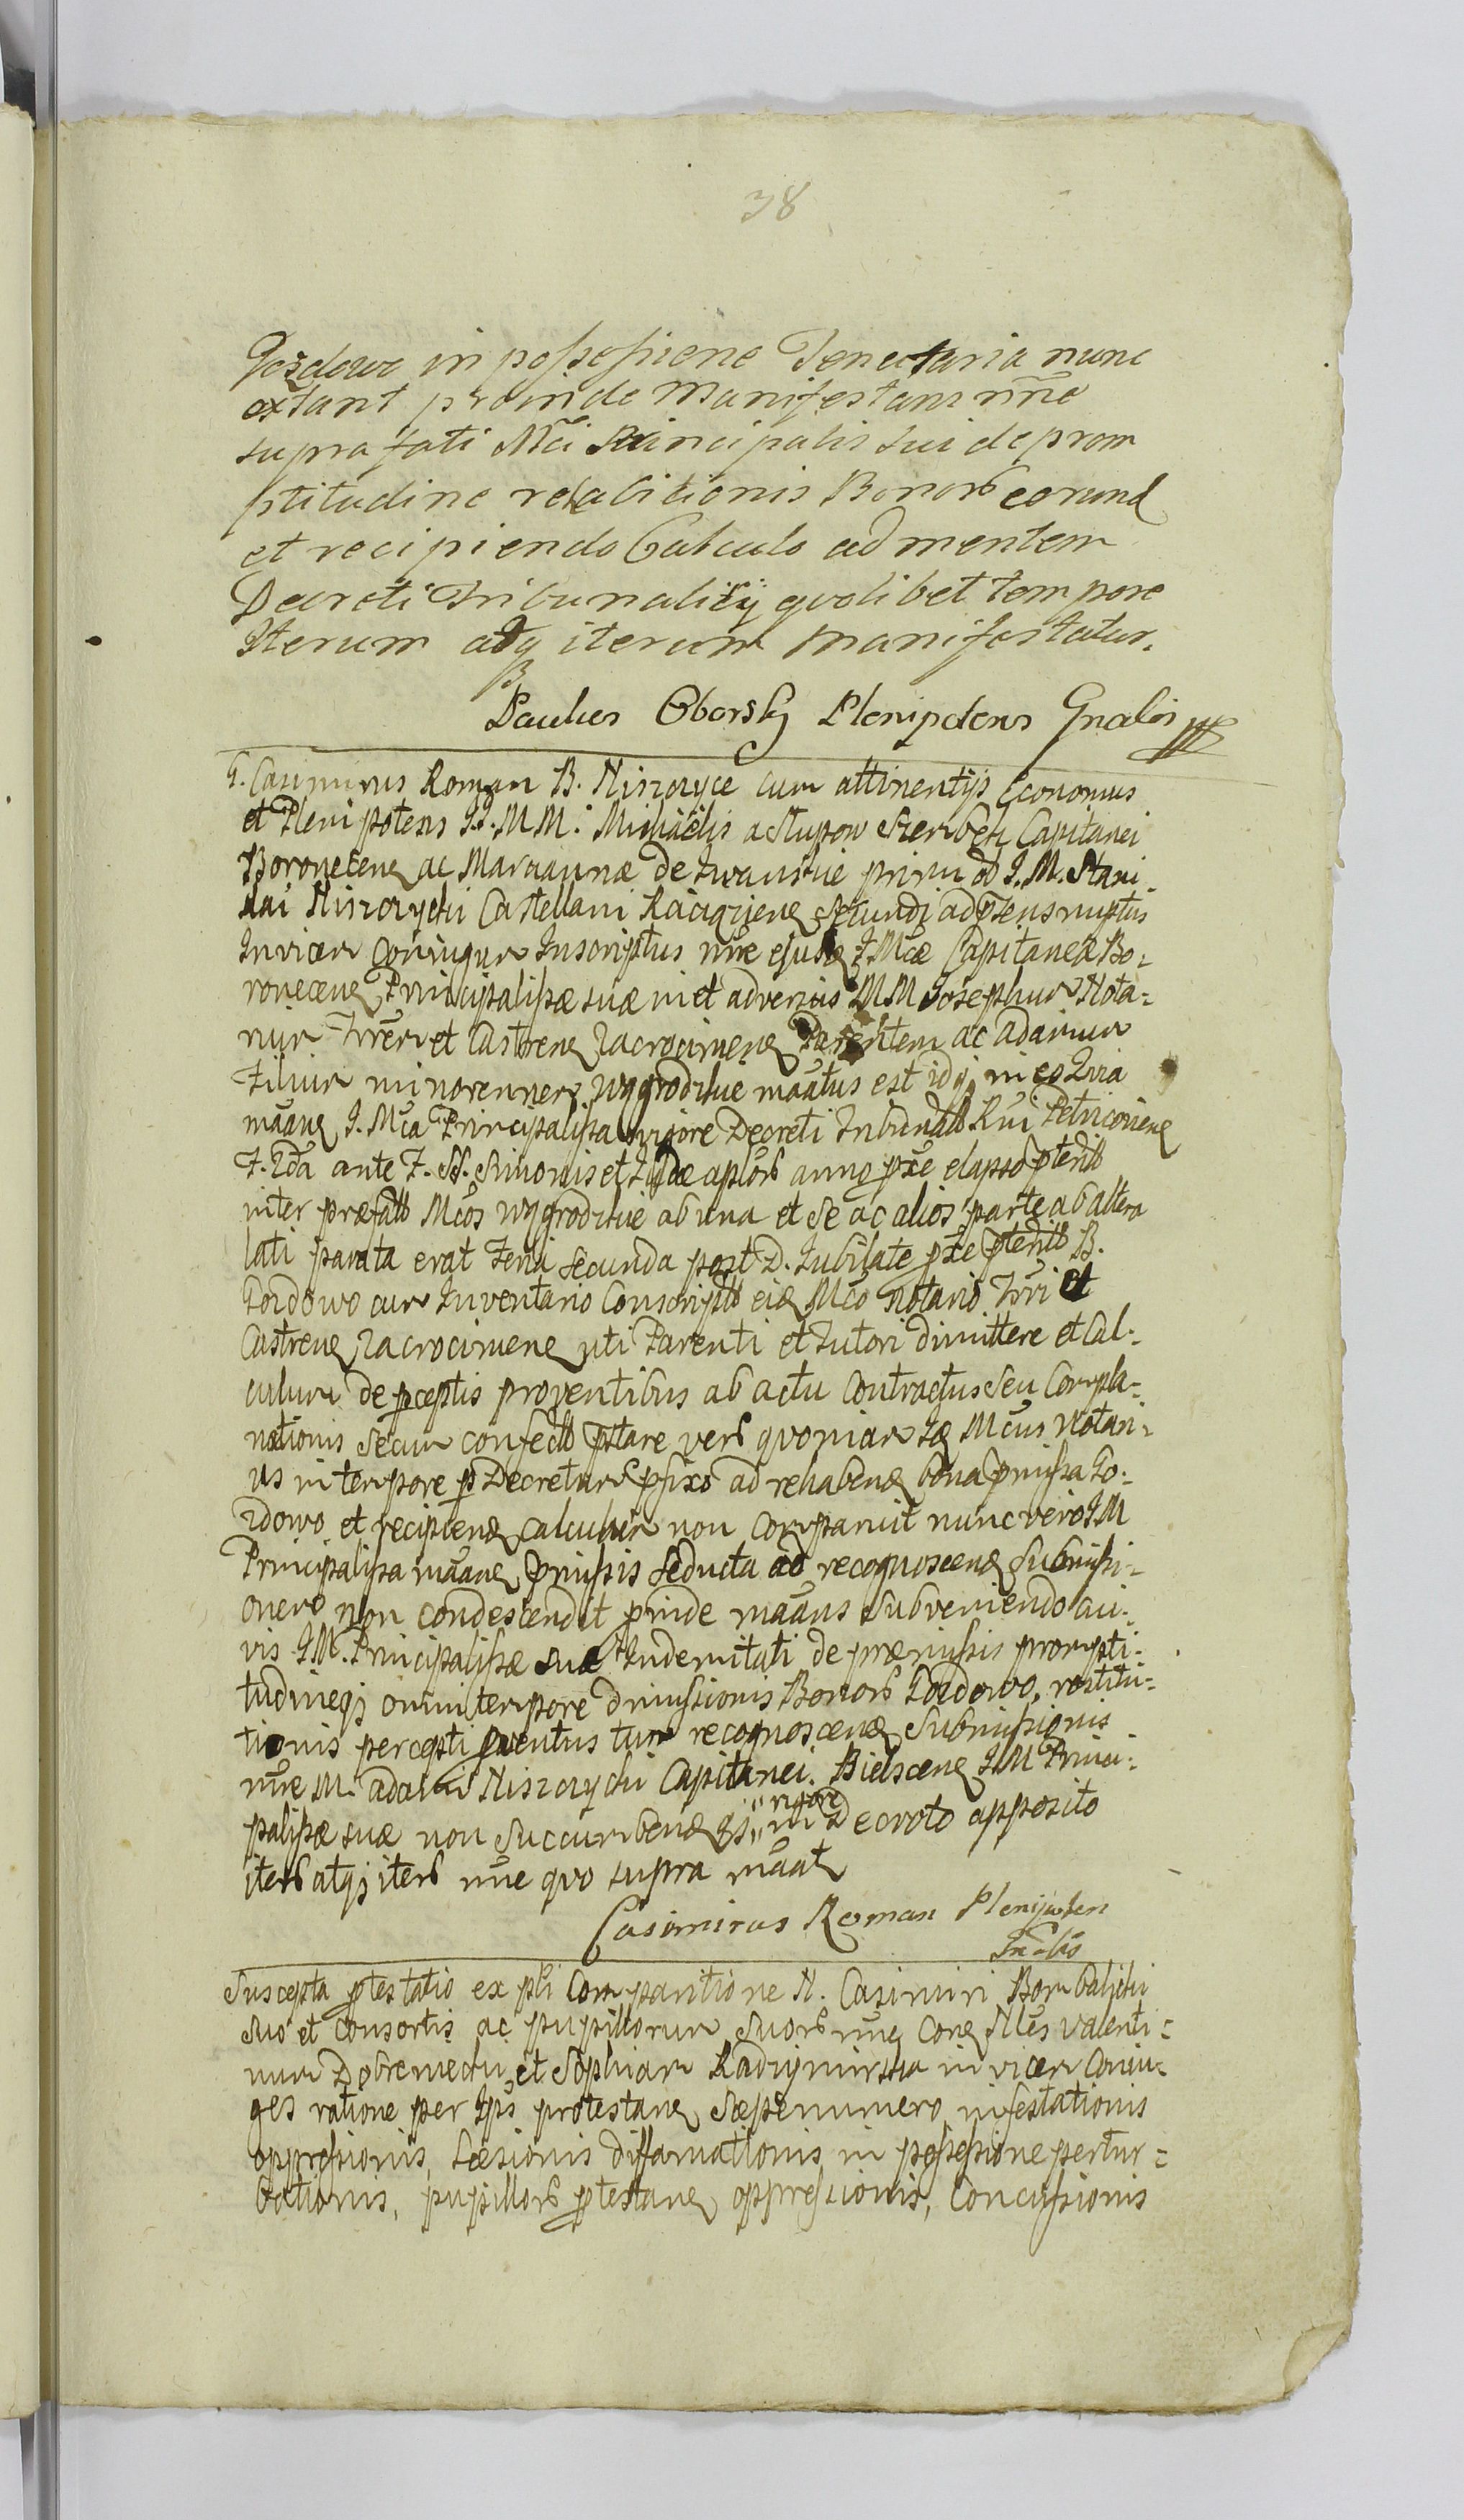 38
Gozdowo in possessione Tenutaria nunc
extant proinde Manifestans nñe
supra fati Mci Principalis sui de prom
ptitudine rehabitionis Bonor eorund
et recipiendo Calculo ad mentem
Decreti Tribunalicij qvolibet tempore
Iterum atq iterum manifestatur.
Paulus Oborsky Plenipotens Gnalis
G. Casimirus Roman B. Niszczyce cum attinentijs Economus
et Plenipotens I.I. M M. Michaelis a Slupow Szembek Capitanei
ac Mariannæ de primi I. M. Stani
slai Niszczycki Castellani Raciązjens secundi ad præsens nuptus
Invicem Conjugum Inscriptus nñe ejusd I. Mcæ Capitaneæ Bo=
Principalissæ suæ in et adversus MM Josephum Nota=
rium Trrem et Castrens Zacrocimens Parentem ac Adamum
Filium minorennem Wygrodzkie mãatus est idq in eo Quia
mãans I. Mca Principalissa vigore Decreti Tribunal Rni Petricoviens
F. 2da ante F. SS. Simonis et Judæ aplor anno pxe elapso pterit
inter præfat Mcos Wygrodzkie ab una et se ac alios parte ab altera
lati parata erat Feria secunda post D. Jubilate pxe pterit B.
Gozdowo cum Inventario Conscript eid Mco Notario Trri et
Castrens Zacrocimens uti Parenti et Tutori dimittere et Cal-
culum de pceptis proventibus ab actu Contractus seu Compla=
nationis secum confect pstare vero qvoniam Id Mcus Notari-
us in tempore p Decretum pfixo ad rehabend bona pmissa Go-
zdowo et recipiend Calculum non comparuit nunc vero I M
Principalissa mãans pmissis seducta ad recognoscend submissi-
onem non condescendit pinde mãans subveniendo cui-
vis I M. Principalissæ suæ Indemnitati de præmissis prompti-
tudineq omni tempore dimissionis Bonor Gozdowo, restitu-
tionis percepti pventus tum recognoscend submissionis
nñe M. Adami Niszczycki Capitanei Bielscens I M Princi-
vigore
palissæ suæ non succumbend in Decreto apposito
iter atq iter nñe quo supra mãat
Casimirus Roman Plenipotens
Gnalis
Suscepta ptestatio ex psti Comparitione N. Casimiri Bombalicki
suo et consortis ac pupillorum suor nñe Cons Nles Valenti=
num Dobrenecki et Sophiam Radzyminska invicem Conju-
ges ratione per Ips protestans sæpenumero infestationis
oppressionis, læsionis diffamationis in possessione pertur=
bationis, pupillor ptestans oppressionis, Concussionis